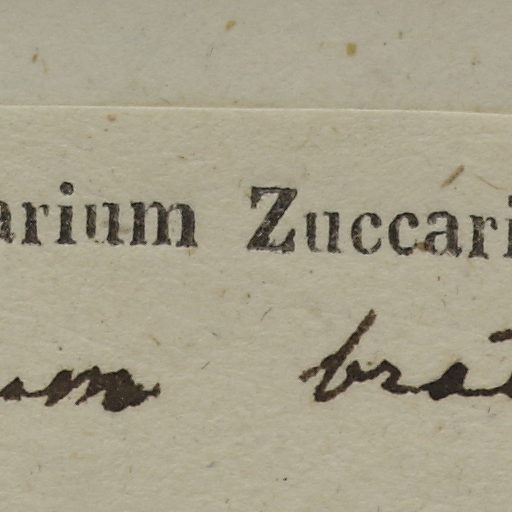 arium Zuccari
um brat